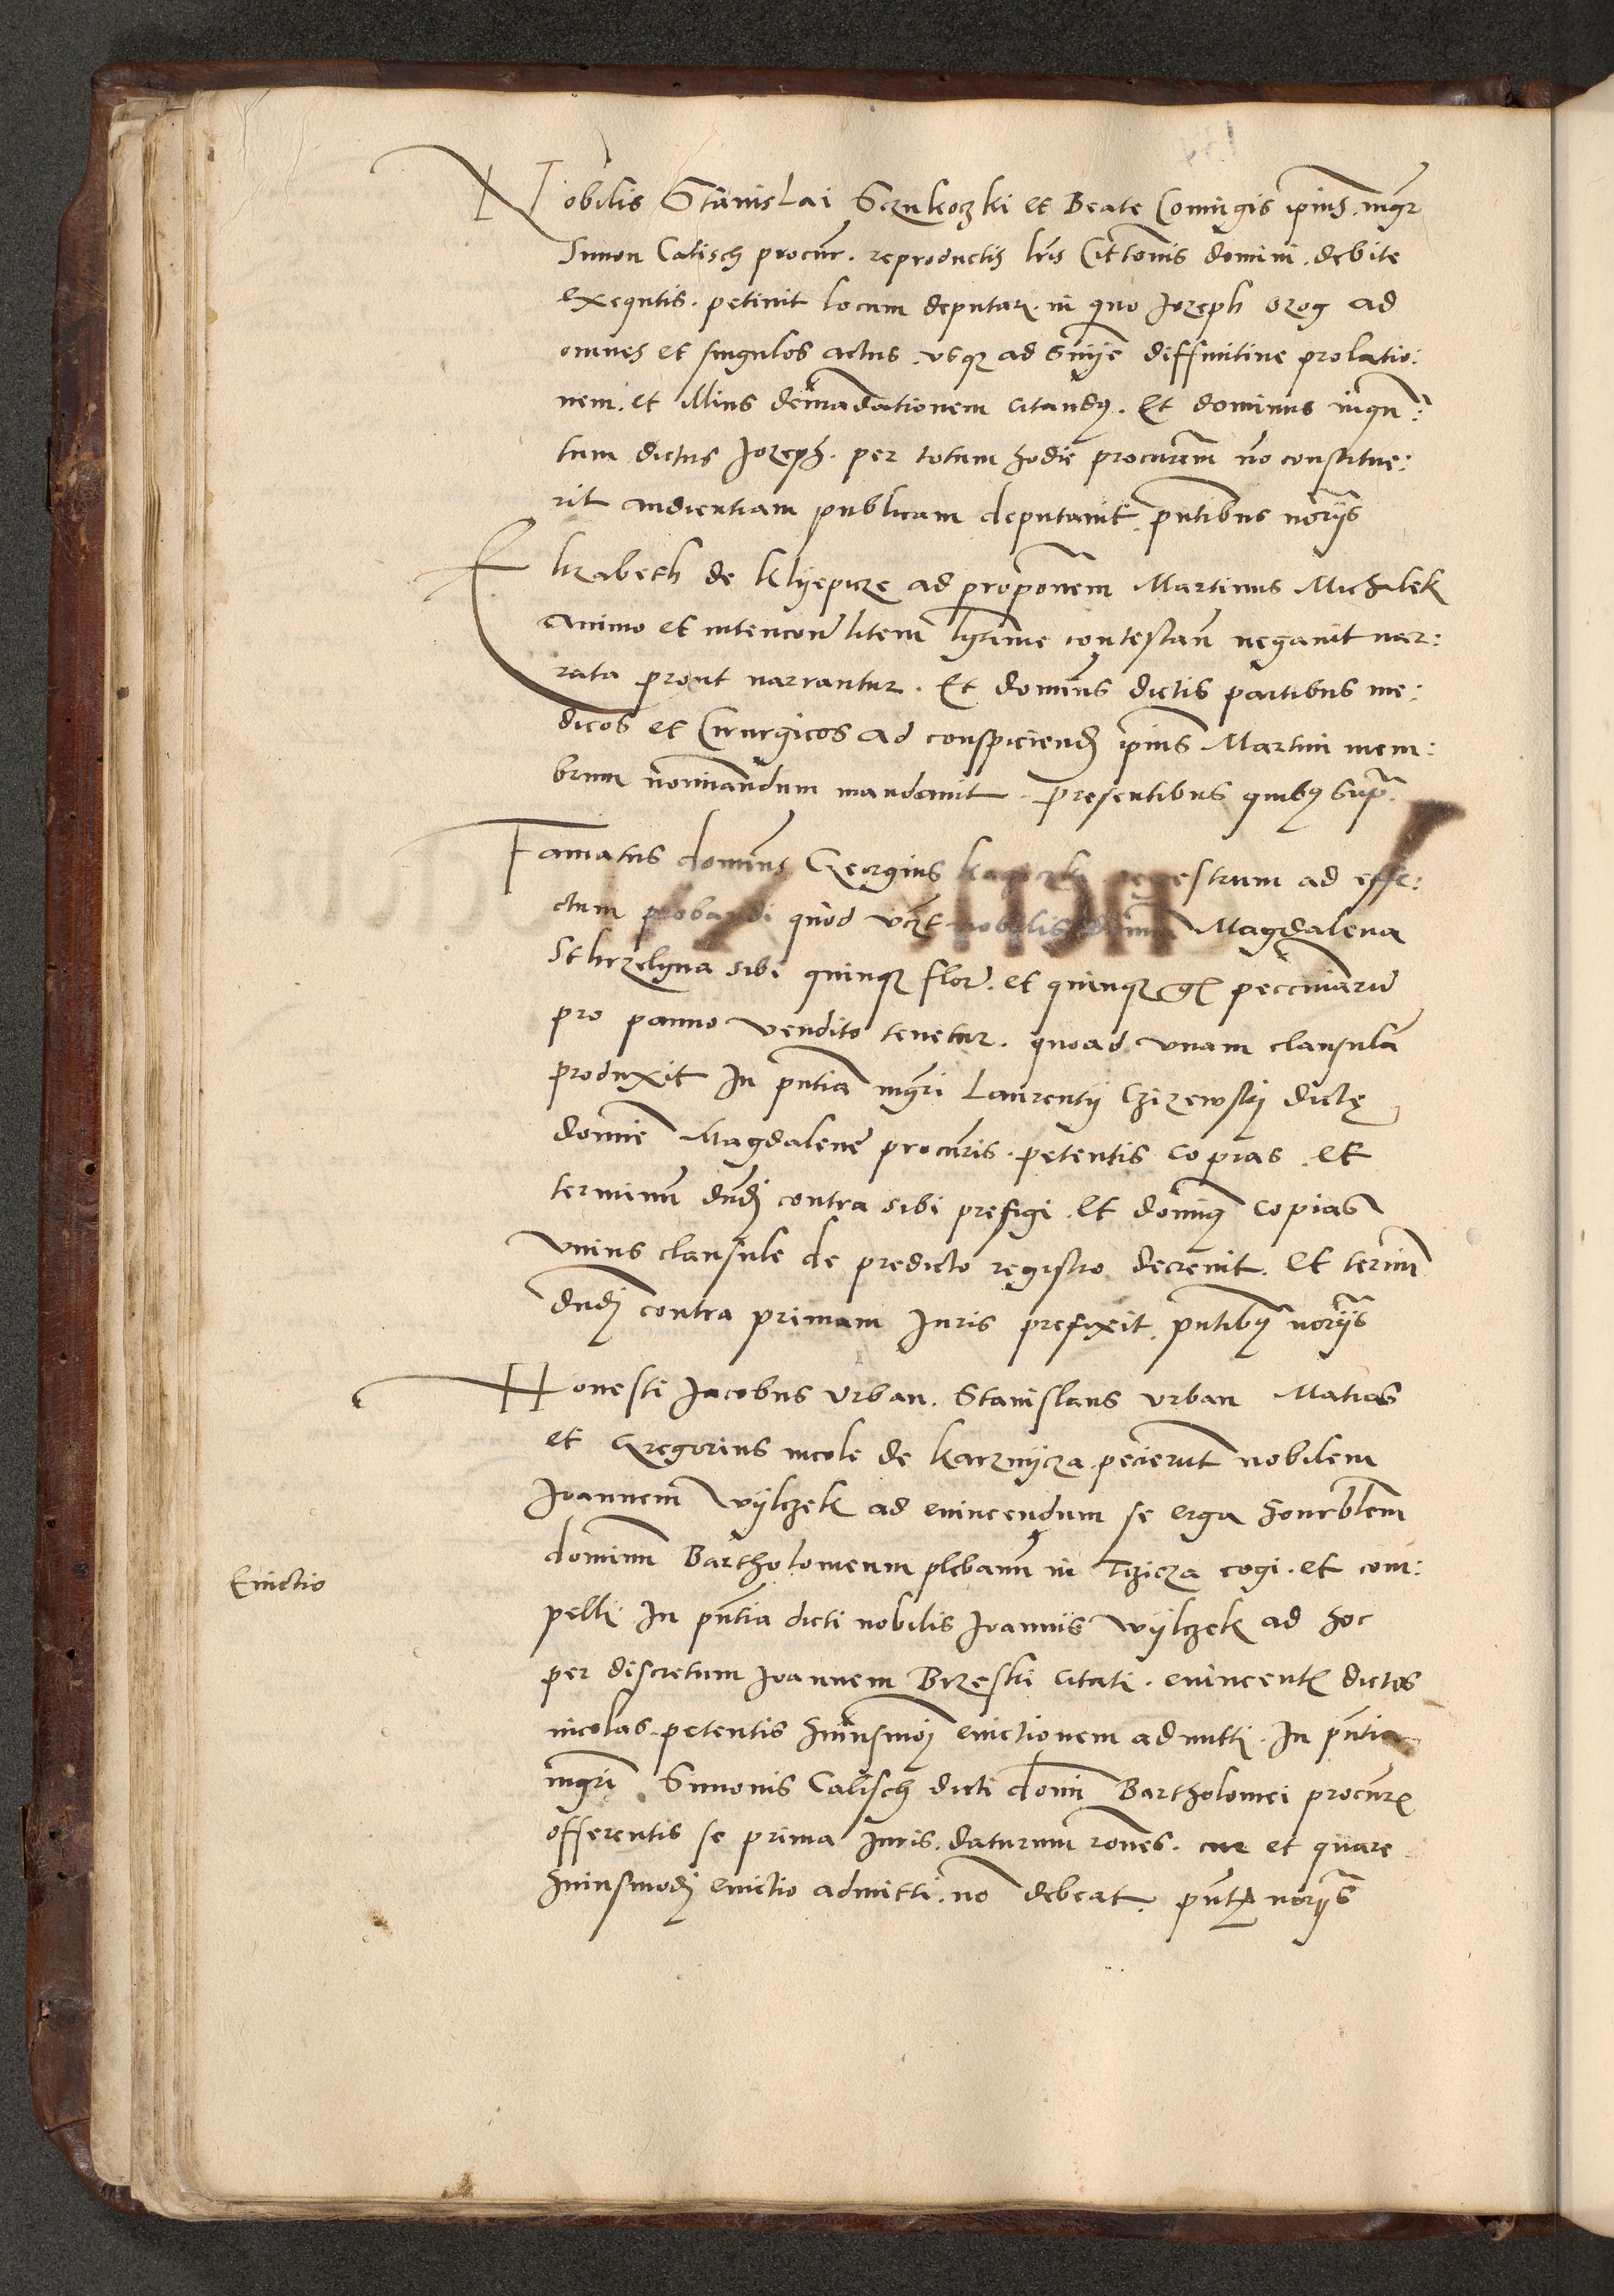 Nobilis Stanislai Sczukoczki et Beate Coniugis ipius mgr
Simon Calisch procur. reproductis lris Cittonis domini debite
exequtis. petiuit locum deputari in quo Jozeph ad
omnes et singulos actus vsqz ad snije diffinitiue prolatio:
nem. et illius demandationem citandus. Et dominus inqu:
tum dictus Jozeph. per totum hodie procurem no constitue:
rit audientiam publicam deputauit pntibus norijs
Elizabeth de Klyepicze ad proponem Martinus Michalek
animo et intencone litem lgitime contestan negauit nar:
rata prout narrantur. Et dominus dictis partibus me:
dicos et Cirurgicos ad conspiciend ipius Martini mem:
brum nominandum mandauit. Presentibus quibus supra
Famatus dominus Georgius registrum ad effe:
ctum probandi quod vczt nobilis domina Magdalena
Sthrzelyna sibi quinqz flor. et quinqz gr pecuniaru
pro panno vendito tenetur. quoad vnam clausula
produxit In pntia mgri Laurentij Czizewsky dicte
domine Magdalene procuris. petentis copias. et
terminum dndi contra sibi prefigi. Et dominus copias
vnius clausule de predicto registro decreuit. Et termi
dndi contra primam Juris prefixit. pntibus norijs
Honesti Jacobus Vrban. Stanislaus Vrban Matias
et Gregorius incole de Karznycza pecierut nobilem
Joannem Wylczek ad euincendum se erga honrblem
dominum Bartholomeum plebanu in Czicza cogi. et com:
pelli In pntia dicti nobilis Joannis Wylczek ad hoc
per discretum Joannem Brzeski citati. euincent dictos
incolas petentis huiusmoi euictionem admitti. In pntia
mgri Simonis Calisch dicti domi Bartholomei procuris
offerentis se prima Juris. daturum rones. cur et quare
huiusmodi euictio admitti. no debeat. pntz norijs
Euictio